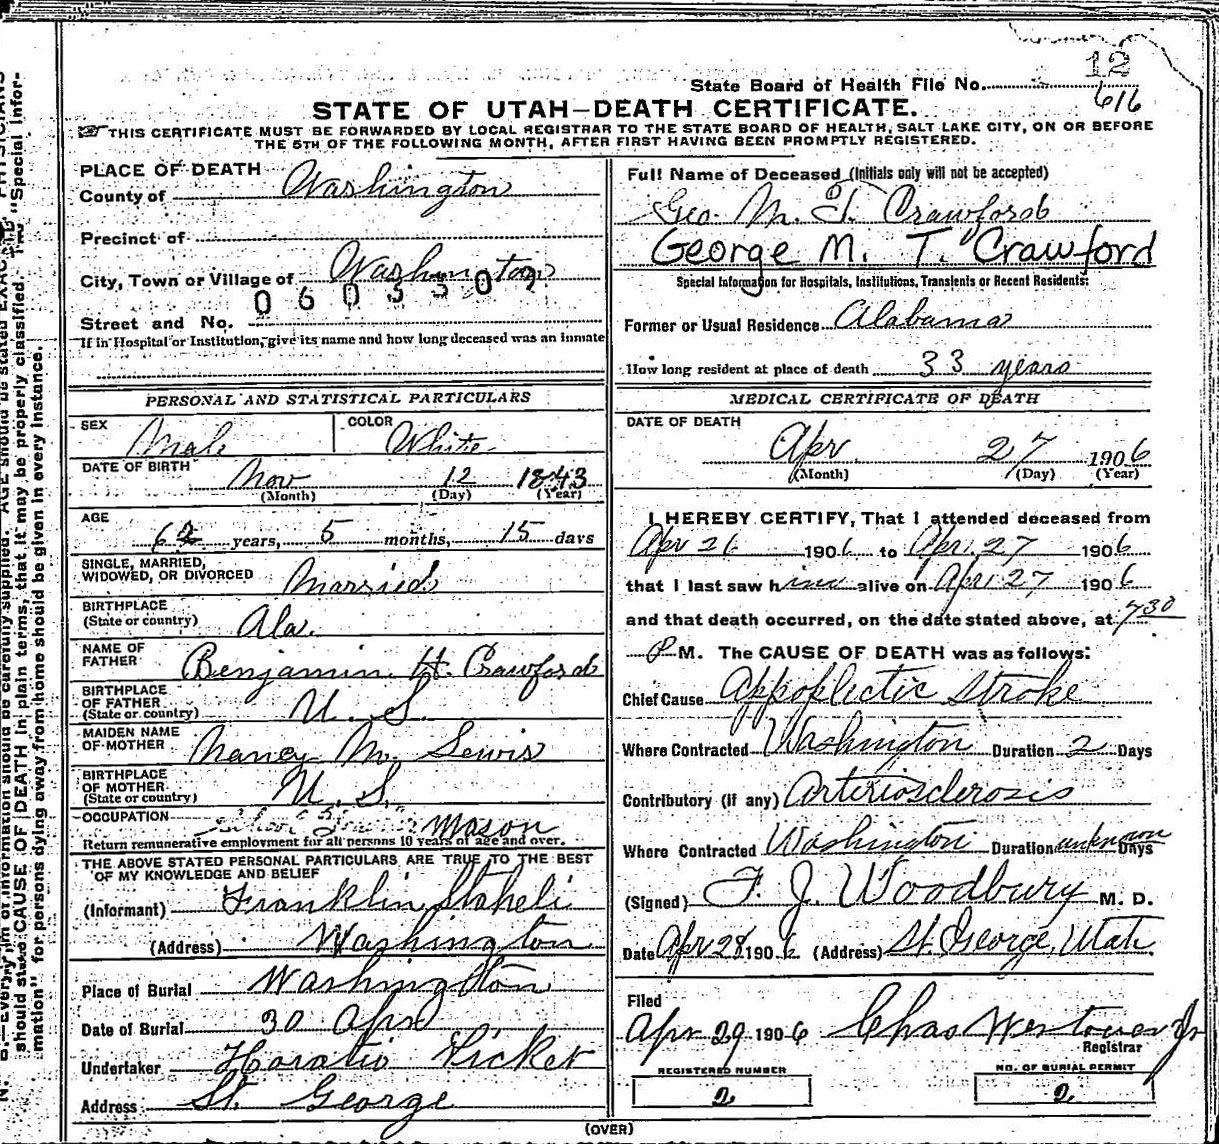 12
State Board of Health File No. 616
STATE OF UTAH—DEATH CERTIFICATE.
THIS CERTIFICATE MUST BE FORWARDED BY LOCAL REGISTRAR TO THE STATE BOARD OF HEALTH, SALT LAKE CITY, ON OR BEFORE
THE 5TH OF THE FOLLOWING MONTH, AFTER FIRST HAVING BEEN PROMPTLY REGISTERED.
PLACE OF DEATH
County of Washington
Precinct of
City, Town or Village of Washington
0603302
Street and No.
If in Hospital or Institution, give its name and how long deceased was an inmate
PERSONAL AND STATISTICAL PARTICULARS
SEX Male COLOR White
DATE OF BIRTH Nov 12 1843
(Month) (Day) (Year)
AGE 62 years, 5 months, 15 days
SINGLE, MARRIED,
WIDOWED, OR DIVORCED Married
BIRTHPLACE
(State or country) Ala.
NAME OF
FATHER Benjamin H. Crawford
BIRTHPLACE
OF FATHER
(State or country) U. S.
MAIDEN NAME
OF MOTHER Nancy M. Lewis
BIRTHPLACE
OF MOTHER
(State or country) U. S.
OCCUPATION Mason
Return remunerative employment for all persons 10 years of age and over.
THE ABOVE STATED PERSONAL PARTICULARS ARE TRUE TO THE BEST
OF MY KNOWLEDGE AND BELIEF
(Informant) Franklin Staheli
(Address) Washington
Place of Burial Washington
Date of Burial 30 Apr
Undertaker Horatio Picket
Address St. George
Full Name of Deceased (Initials only will not be accepted)
Geo. M. T. Crawford
George M. T. Crawford
Special Information for Hospitals, Institutions, Transients or Recent Residents:
Former or Usual Residence Alabama
How long resident at place of death 33 years
MEDICAL CERTIFICATE OF DEATH
DATE OF DEATH
Apr 27 1906
(Month) (Day) (Year)
I HEREBY CERTIFY, That I attended deceased from
Apr 26 1906 to Apr. 27 1906
that I last saw him alive on Apr. 27 1906
and that death occurred, on the date stated above, at 730
P M. The CAUSE OF DEATH was as follows:
Chief Cause Appoplectic Stroke
Where Contracted Washington Duration 2 Days
Contributory (if any) Arteriosclerosis
Where Contracted Washington Duration unknown Days
(Signed) F. J. Woodbury M. D.
Date Apr 28 1906 (Address) St. George, Utah
Filed
Apr 29 1906 Chas Westover Jr
Registrar
REGISTERED NUMBER
2
NO. OF BURIAL PERMIT
2
(OVER)
should state CAUSE OF DEATH in plain terms, that it may be properly classified. The "Special Infor-
mation" for persons dying away from home should be given in every instance.